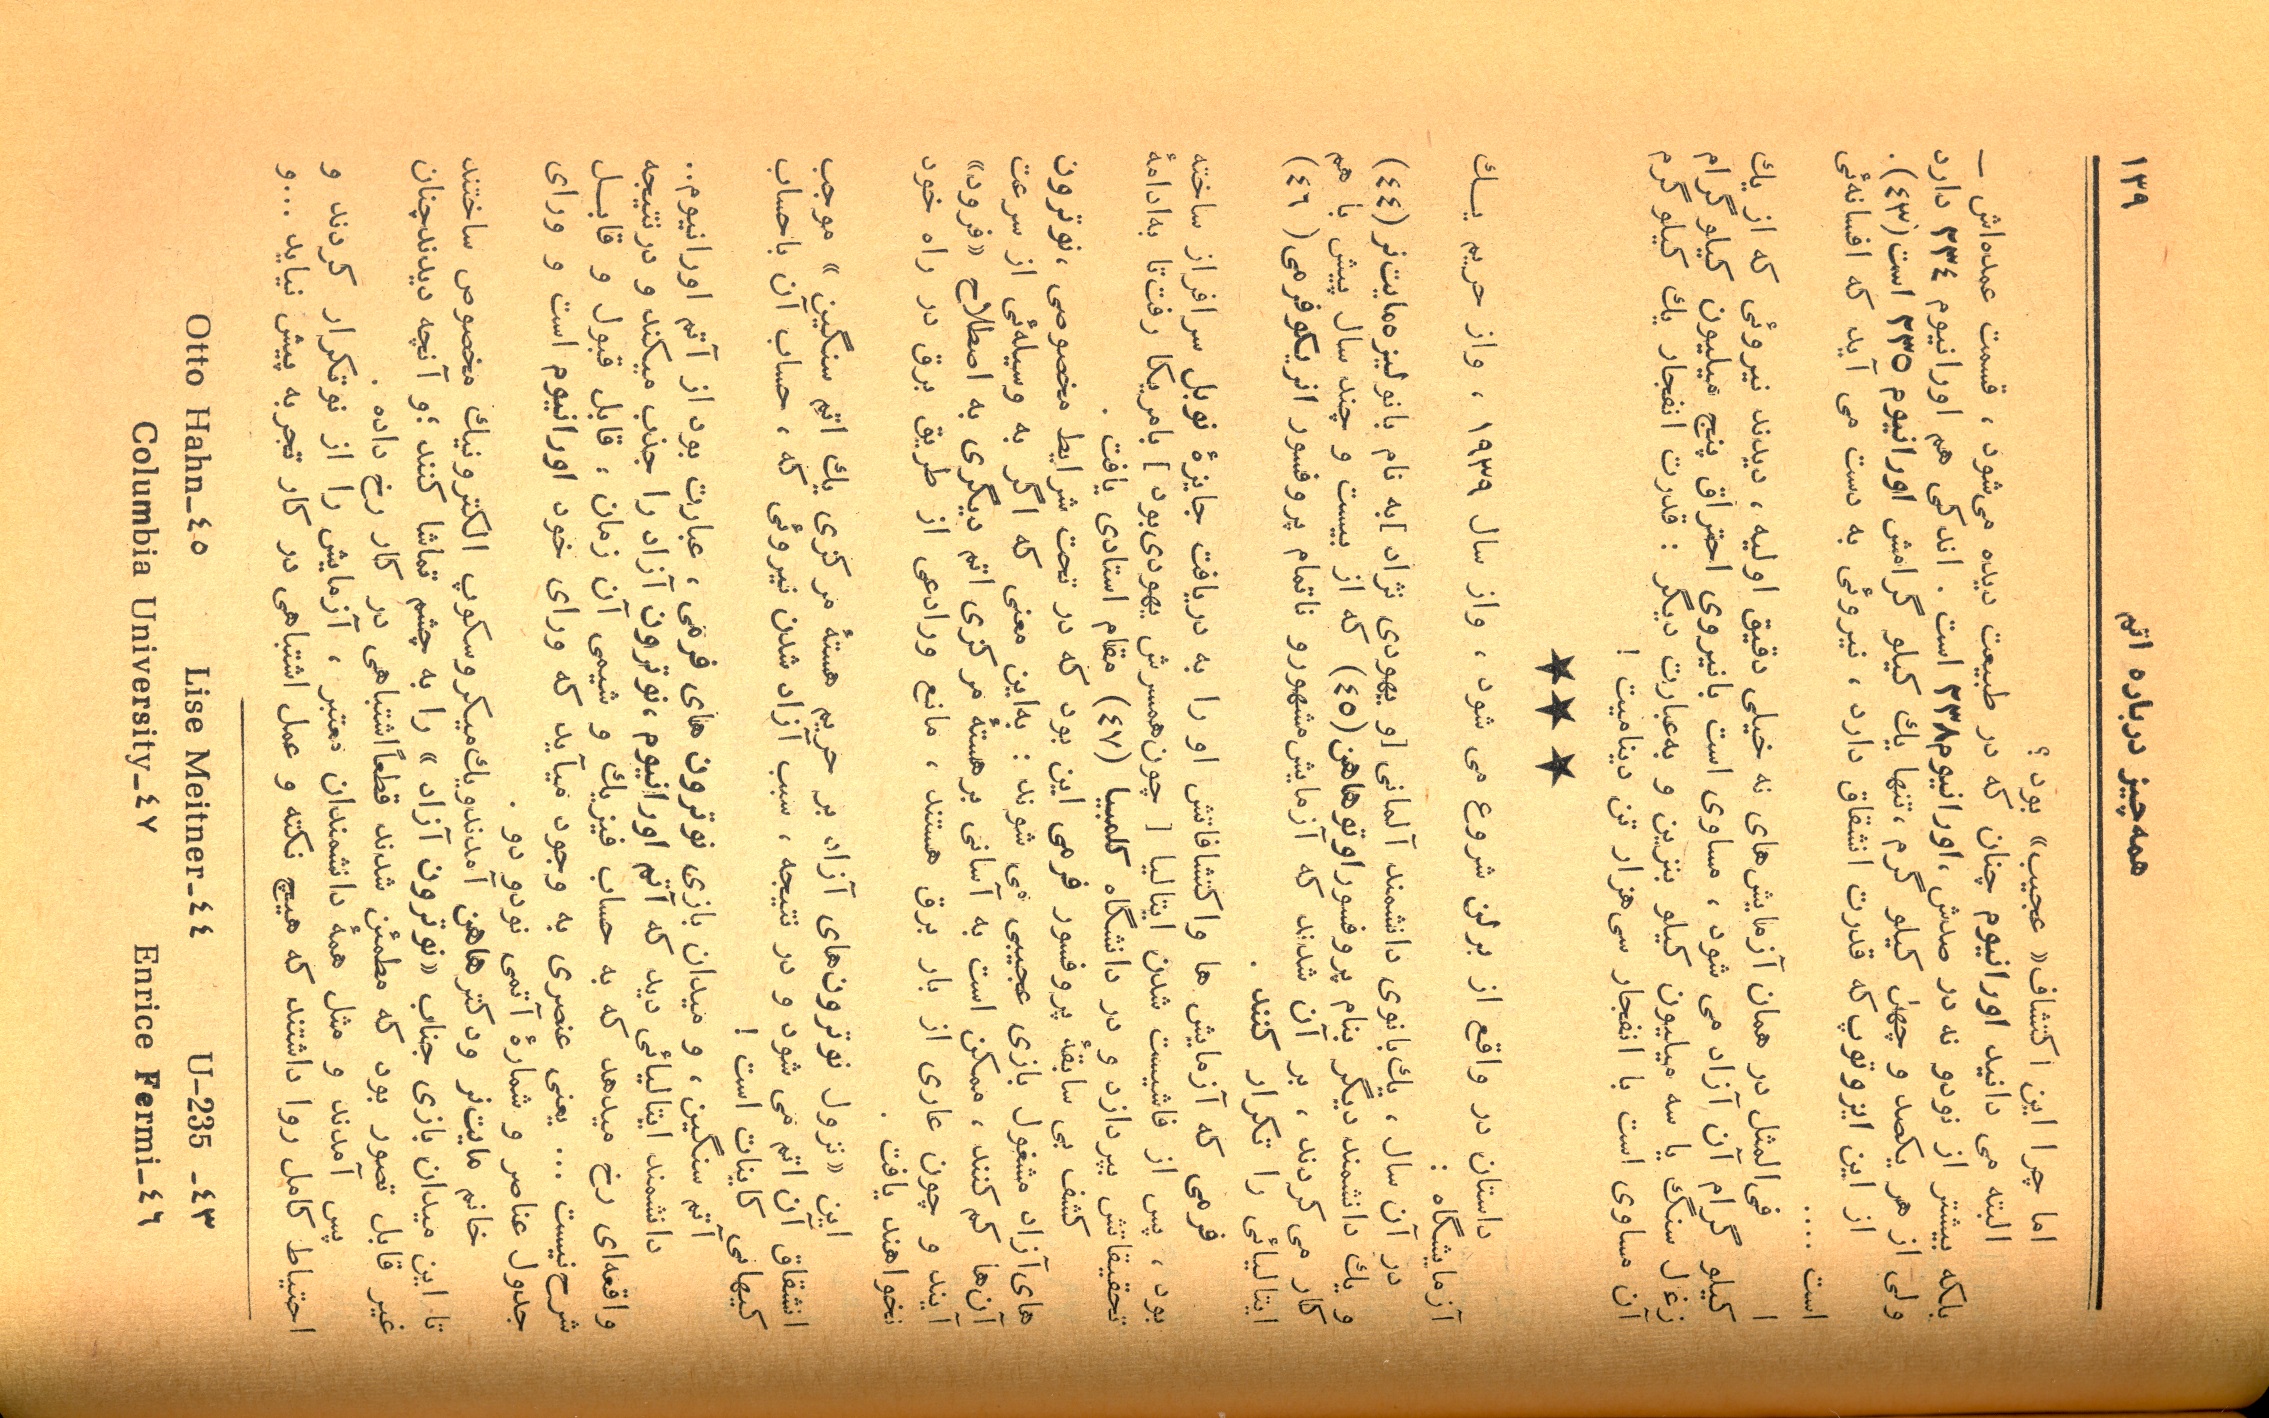 ۱۳۹ همه‌چیز درباره اتم
اما چرا این اکتشاف« عجیب» بود ؟
البته می دانید اورانیوم چنان که در طبیعت دیده می‌شود ، قسمت عمده‌اش –
بلکه بیشتر از نودو نه در صدش ،اورانیوم۲۳۸ است . اندکی هم اورانیوم ۲۳٤ دارد
ولی از هر یکصد و چهل کیلو گرم ،تنها یك کیلو گرامش اورانیوم ۲۳٥ است(٤۳).
از این ایزوتوپ که قدرت انشقاق دارد ، نیروئی به دست می آید که افسانه‌ئی
است ....
فی‌المثل در همان آزمایش‌های نه خیلی دقیق اولیه ، دیدند نیروئی که از یك
کیلو گرام آن آزاد می شود ، مساوی است بانیروی احتراق پنج میلیون کیلو گرام
زغال سنگ یا سه میلیون کیلو بنزین و به‌عبارت دیگر : قدرت انفجار یك کیلو گرم
آن مساوی است با انفجار سی‌هزار تن دینامیت !
★★★
داستان در واقع از برلن شروع می شود ، واز سال ۱۹۳۹ ، واز حریم یــك
آزمایشگاه :
در آن سال ، یك‌بانوی دانشمند آلمانی [و یهودی نژاد ]به نام بانو لیزه‌مایت‌نر(٤٤)
و یك دانشمند دیگر بنام پروفسوراوتوهاهن(٤٥) که از بیست و چند سال پیش با هم
کار می کردند ، بر آن شدند که آزمایش‌مشهورو ناتمام پروفسور انریکوفرمی( ٤٦)
ایتالیائی را تکرار کنند .
فرمی که آزمایش ها واکتشافاتش او را به دریافت جایزهٔ نوبل سرافراز ساخته
بود ، پس از فاشیست شدن ایتالیا [ چون‌همسرش یهودی‌بود ] بامریکا رفت‌تا به‌ادامهٔ
تحقیقاتش بپردازد و در دانشگاه کلمبیا (٤٧) مقام استادی یافت .
کشف بی سابقهٔ پروفسور فرمی این بود که در تحت شرایط مخصوصی ،نوترون
های‌آزاد مشغول بازی عجیبی می شوند : به‌این معنی که اگر به وسیله‌ئی از سرعت
آن‌ها کم کنند ، ممکن است به آسانی برهستهٔ مرکزی اتم دیگری به اصطلاح «فرود»
آیند و چون عاری از بار برق هستند ، مانع ورادعی از طریق برق در راه خود
نخواهند یافت .
این «نزول نوترون‌های آزاد بر حریم هستهٔ مرکزی یك اتم سنگین » موجب
انشقاق آن اتم می شود و در نتیجه ، سبب آزاد شدن نیروئی که ، حساب آن باحساب
کیهانی کاینات است !
آتم سنگین ، و میدان بازی نوترون های فرمی ، عبارت بود از آتم اورانیوم..
دانشمند ایتالیائی دید که آتم اورانیوم ،نوترون آزاد را جذب میکند و درنتیجه
واقعه‌ای رخ میدهد که به حساب فیزیك و شیمی آن زمان ، قابل قبول و قابــل
شرح نیست ... یعنی عنصری به وجود میآید که ورای خود اورانیوم است و ورای
جدول عناصر و شمارهٔ آتمی نودو دو .
خانم مایت‌نر ودکترهاهن آمدندویك‌میکروسکوپ الکترونیك مخصوص ساختند
تا این میدان بازی جناب «نوترون آزاد» را به چشم تماشا کنند ؛و آنچه دیدندچنان
غیر قابل تصور بود که مطمئن شدند قطعاًاشتباهی در کار رخ داده .
پس آمدند و مثل همهٔ دانشمندان معتبر ، آزمایش را از نوتکرار کردند و
احتیاط کامل روا داشتند که هیچ نکته و عمل اشتباهی در کار تجربه پیش نیاید ...و
Otto Hahn_٤٥ Lise Meitner_٤٤ U_235 _٤۳
Columbia University_٤٧ Enrice Fermi_٤٦